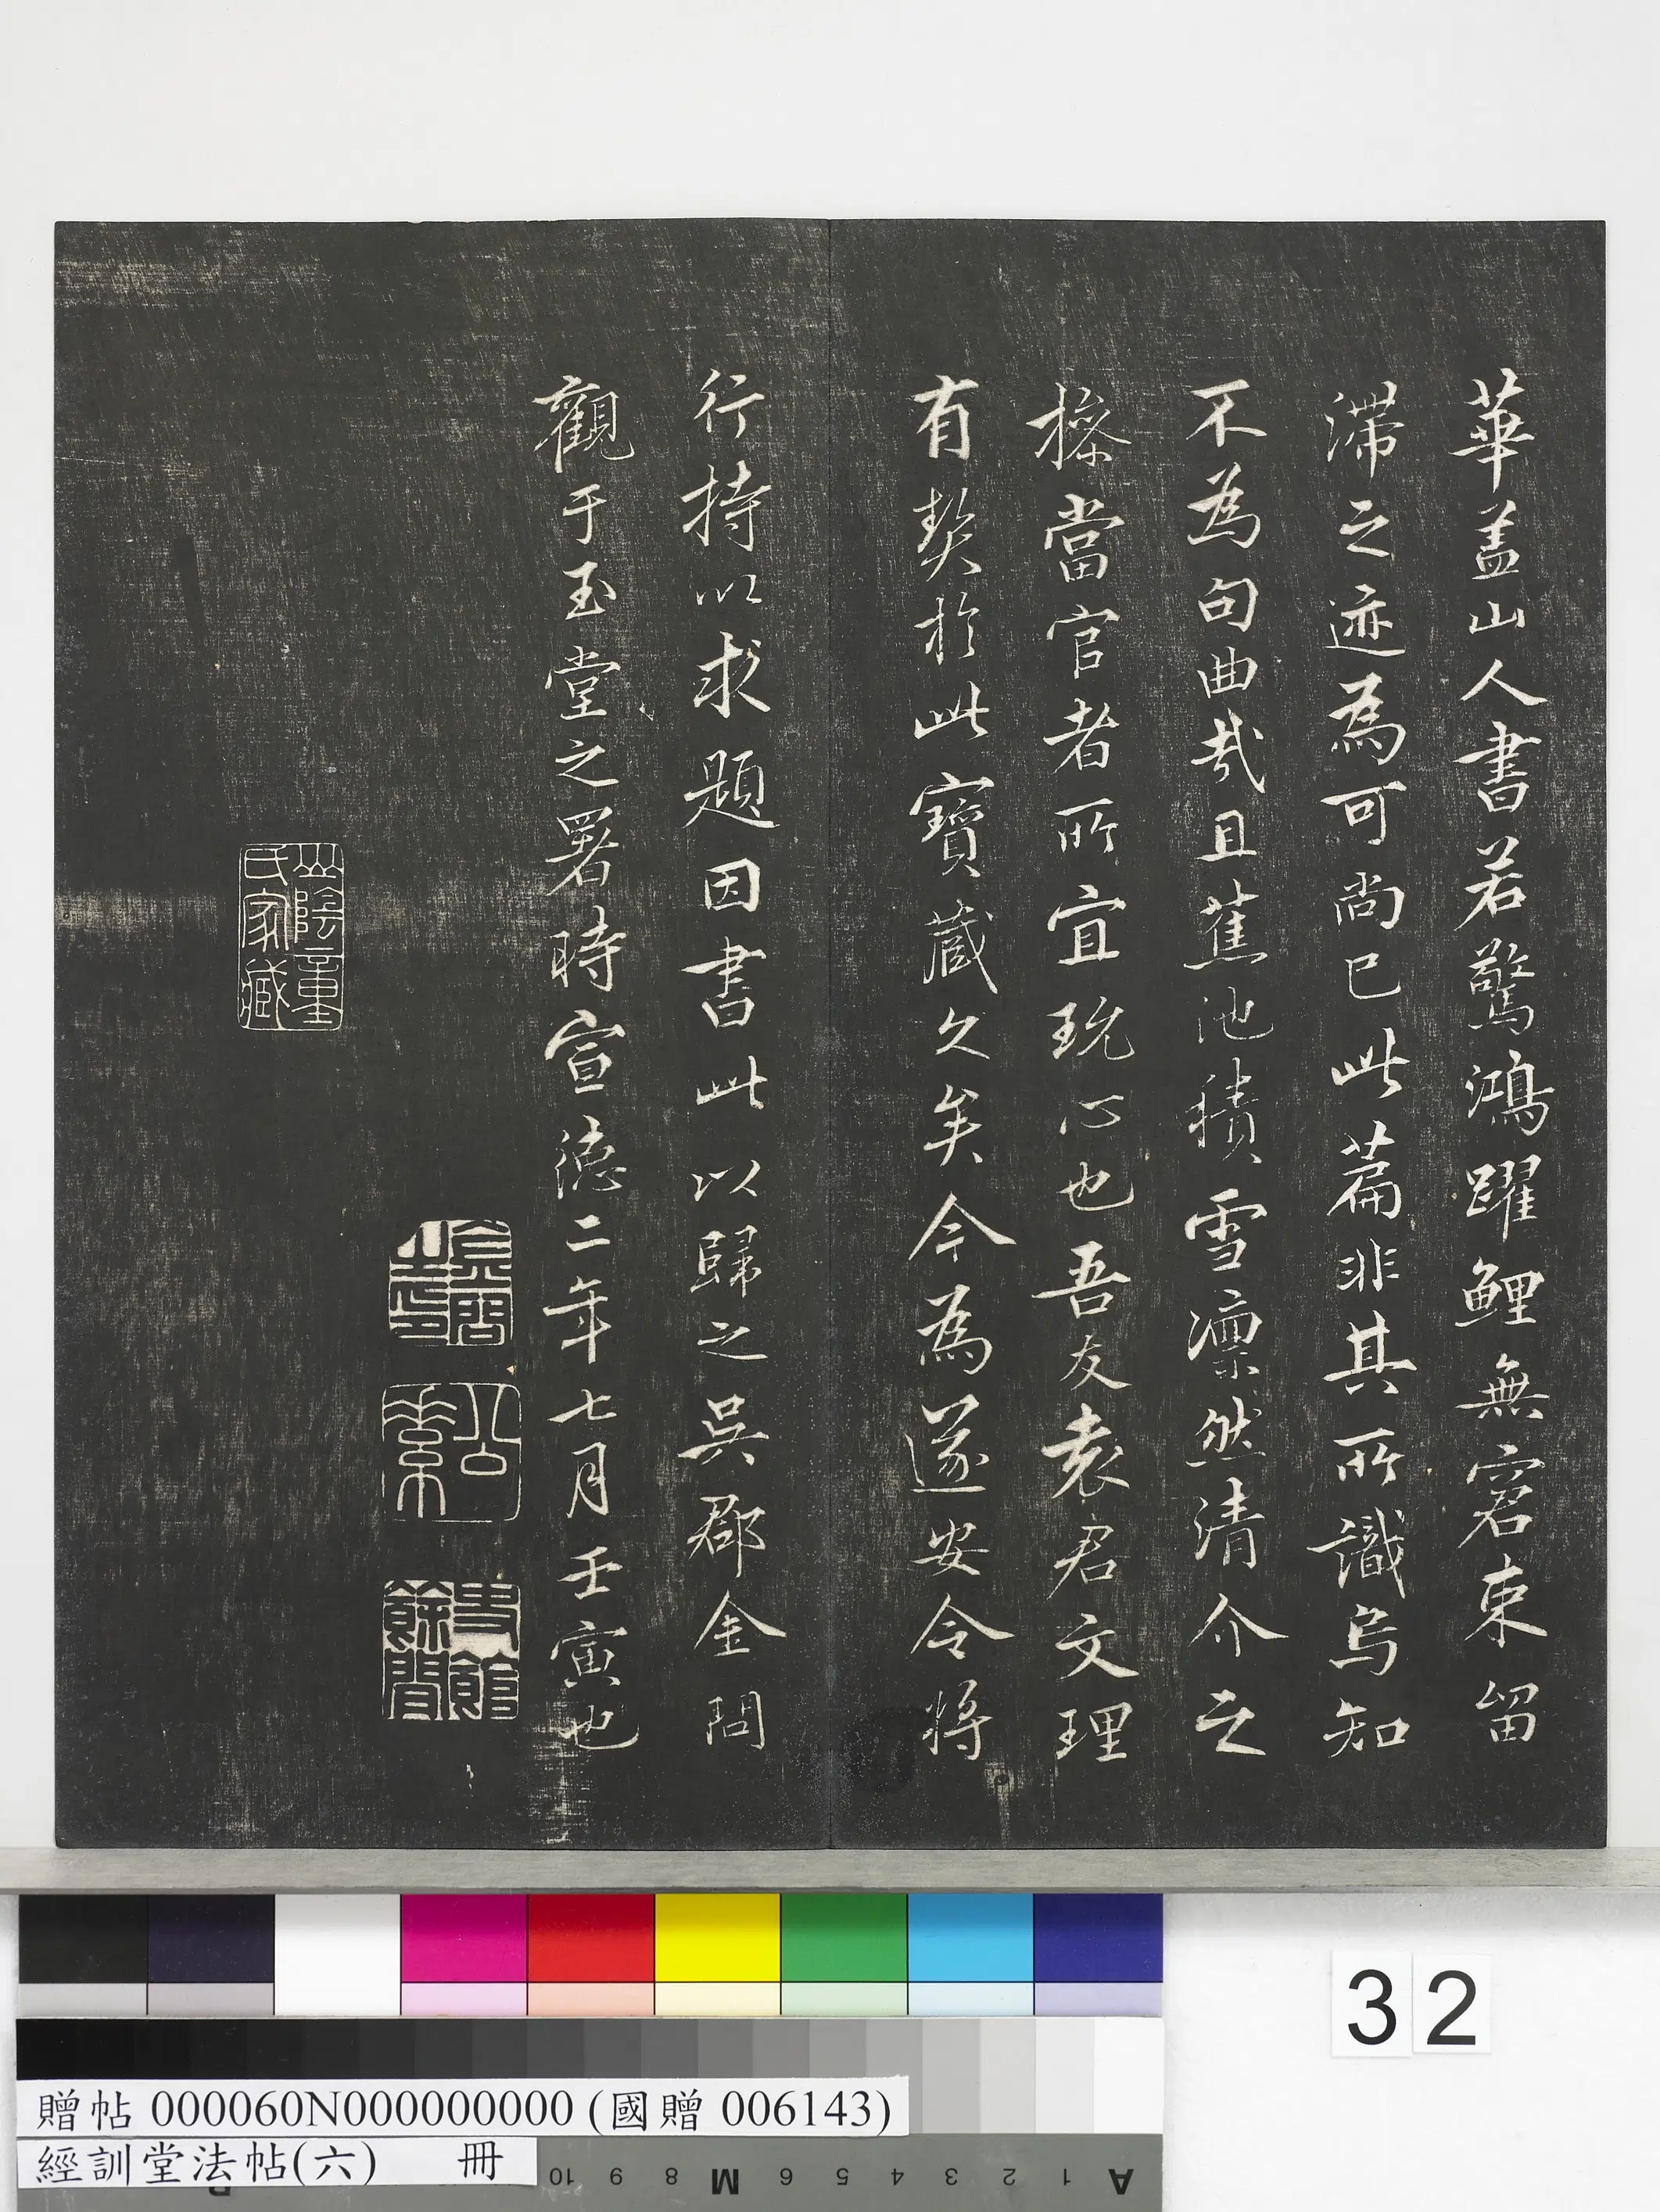 華盖山人書若驚鴻躍鯉無窘束留
滞之迹為可尚已此篇非其所識烏知
不為句曲哉且蕉池積雪凛然清介之
操當官者所宜玩心也吾友袁君文理
有契於此寶藏久矣今為遂安令將
行持以求題因書此以歸之吳郡金問
觀于玉堂之署時宣德二年七月壬寅也
公素
書館餘閒
山陰童氏家藏
32
贈帖 000060N000000000 (國贈 006143)
經訓堂法帖(六) 冊
10 9 8 M 6 5 4 3 2 1 A